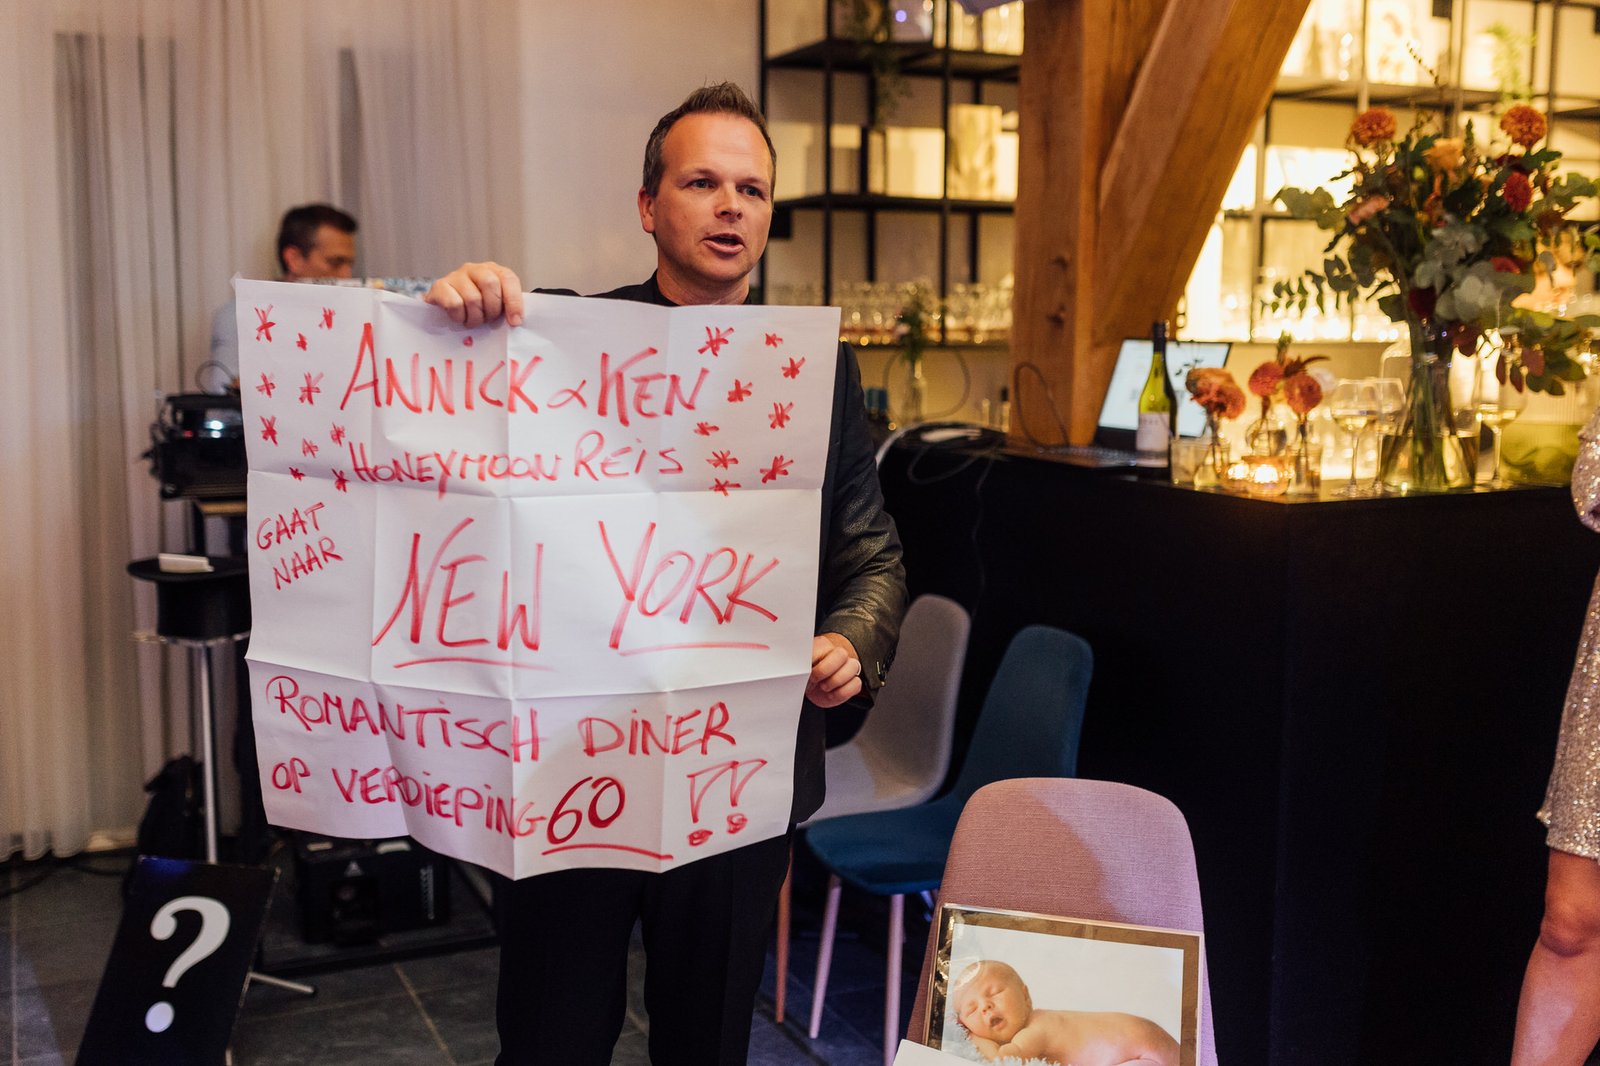 ANNICK & KEN
HONEYMOON REIS
GAAT
NAAR
NEW YORK
ROMANTISCH DINER
OP VERDIEPING 60 !!
?